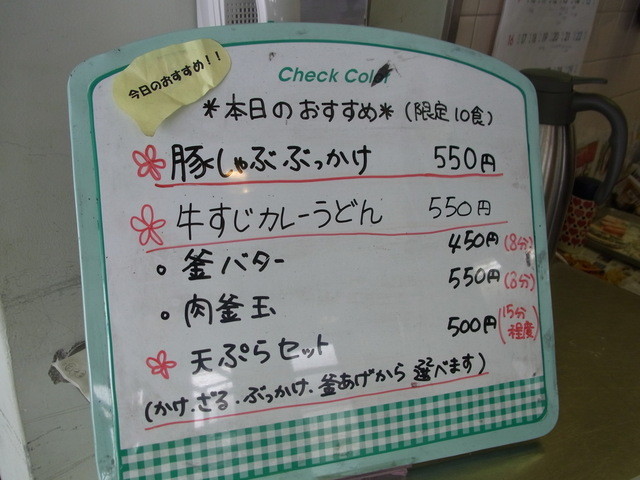 今日のおすすめ!!
Check Color
＊本日のおすすめ＊(限定10食)
豚しゃぶぶっかけ 550円
牛すじカレーうどん 550円
・釜バター 450円(8分)
・肉釜玉 550円(8分)
天ぷらセット 500円(15分程度)
(かけ、ざる・ぶっかけ、釜あげから選べます)